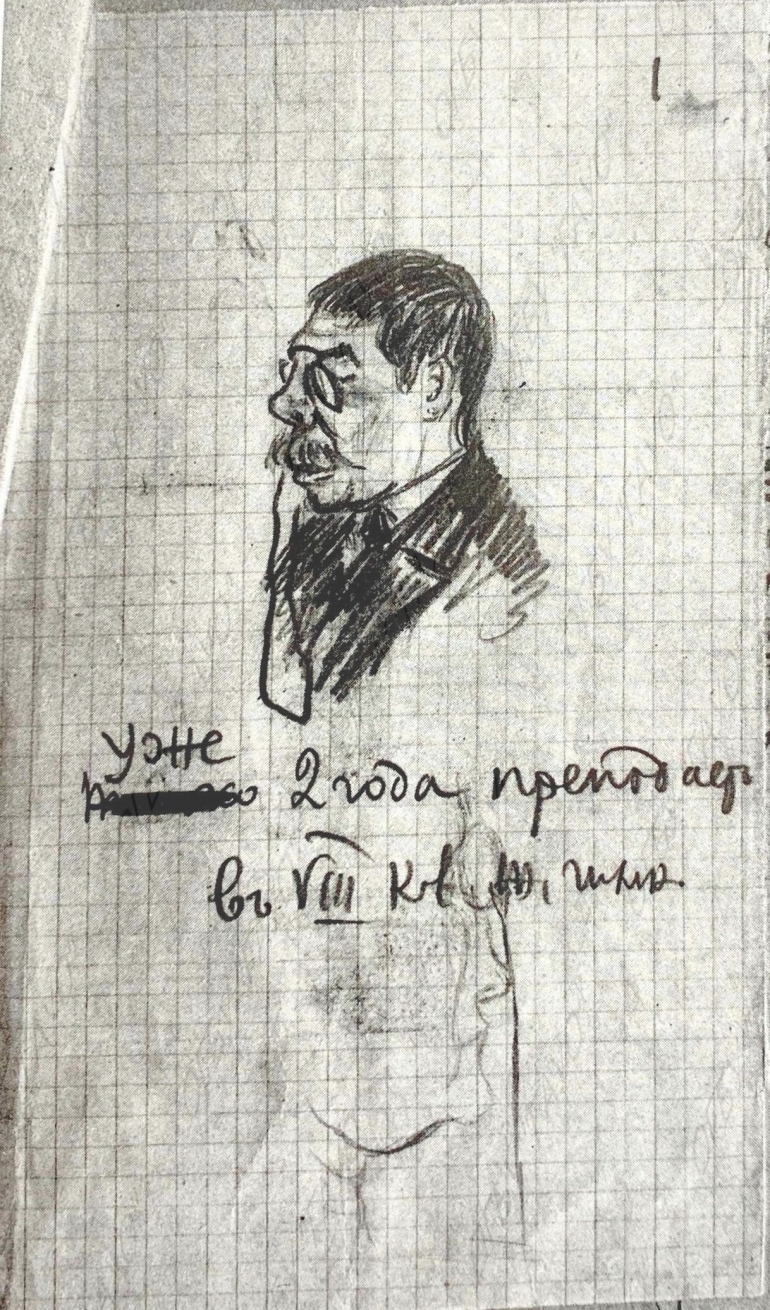 1
уже
2 года преподаетъ
въ VIII кл. ж. гимн.